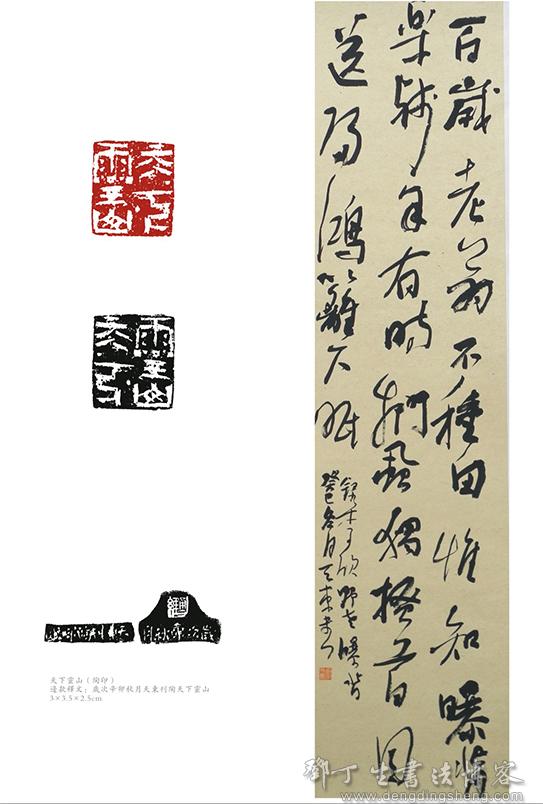 百歲老翁不種田惟知曝背
樂殘年有時捫虱獨搔首目
送歸鴻籬下眠
錄李頎野老曝背
癸巳冬月天東書
天下靈山
天下靈山（陶印）
邊款釋文：歲次辛卯秋月天東刊陶天下靈山
3×3.5×2.5cm
鄧丁生書法博客
www.dengdingsheng.com